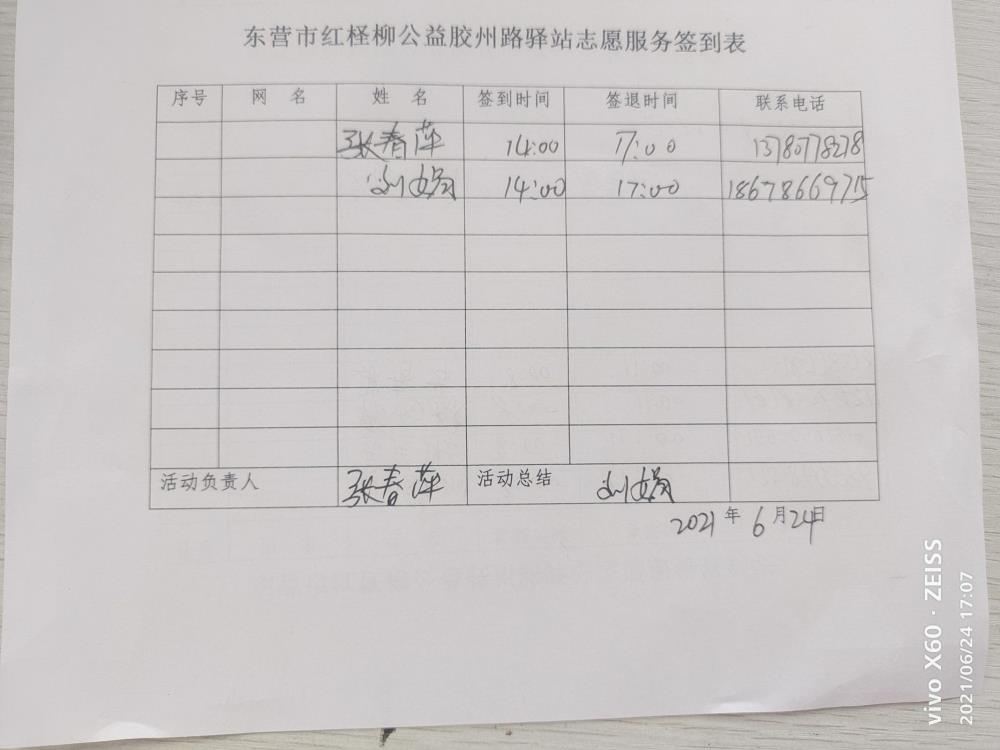 东营市红柽柳公益胶州路驿站志愿服务签到表
序号 网 名 姓 名 签到时间 签退时间 联系电话
张春萍 14:00 17:00 13780778278
刘娟 14:00 17:00 18678669715
活动负责人 张春萍 活动总结 刘娟
2021年6月24日
vivo X60 · ZEISS
2021/06/24 17:07